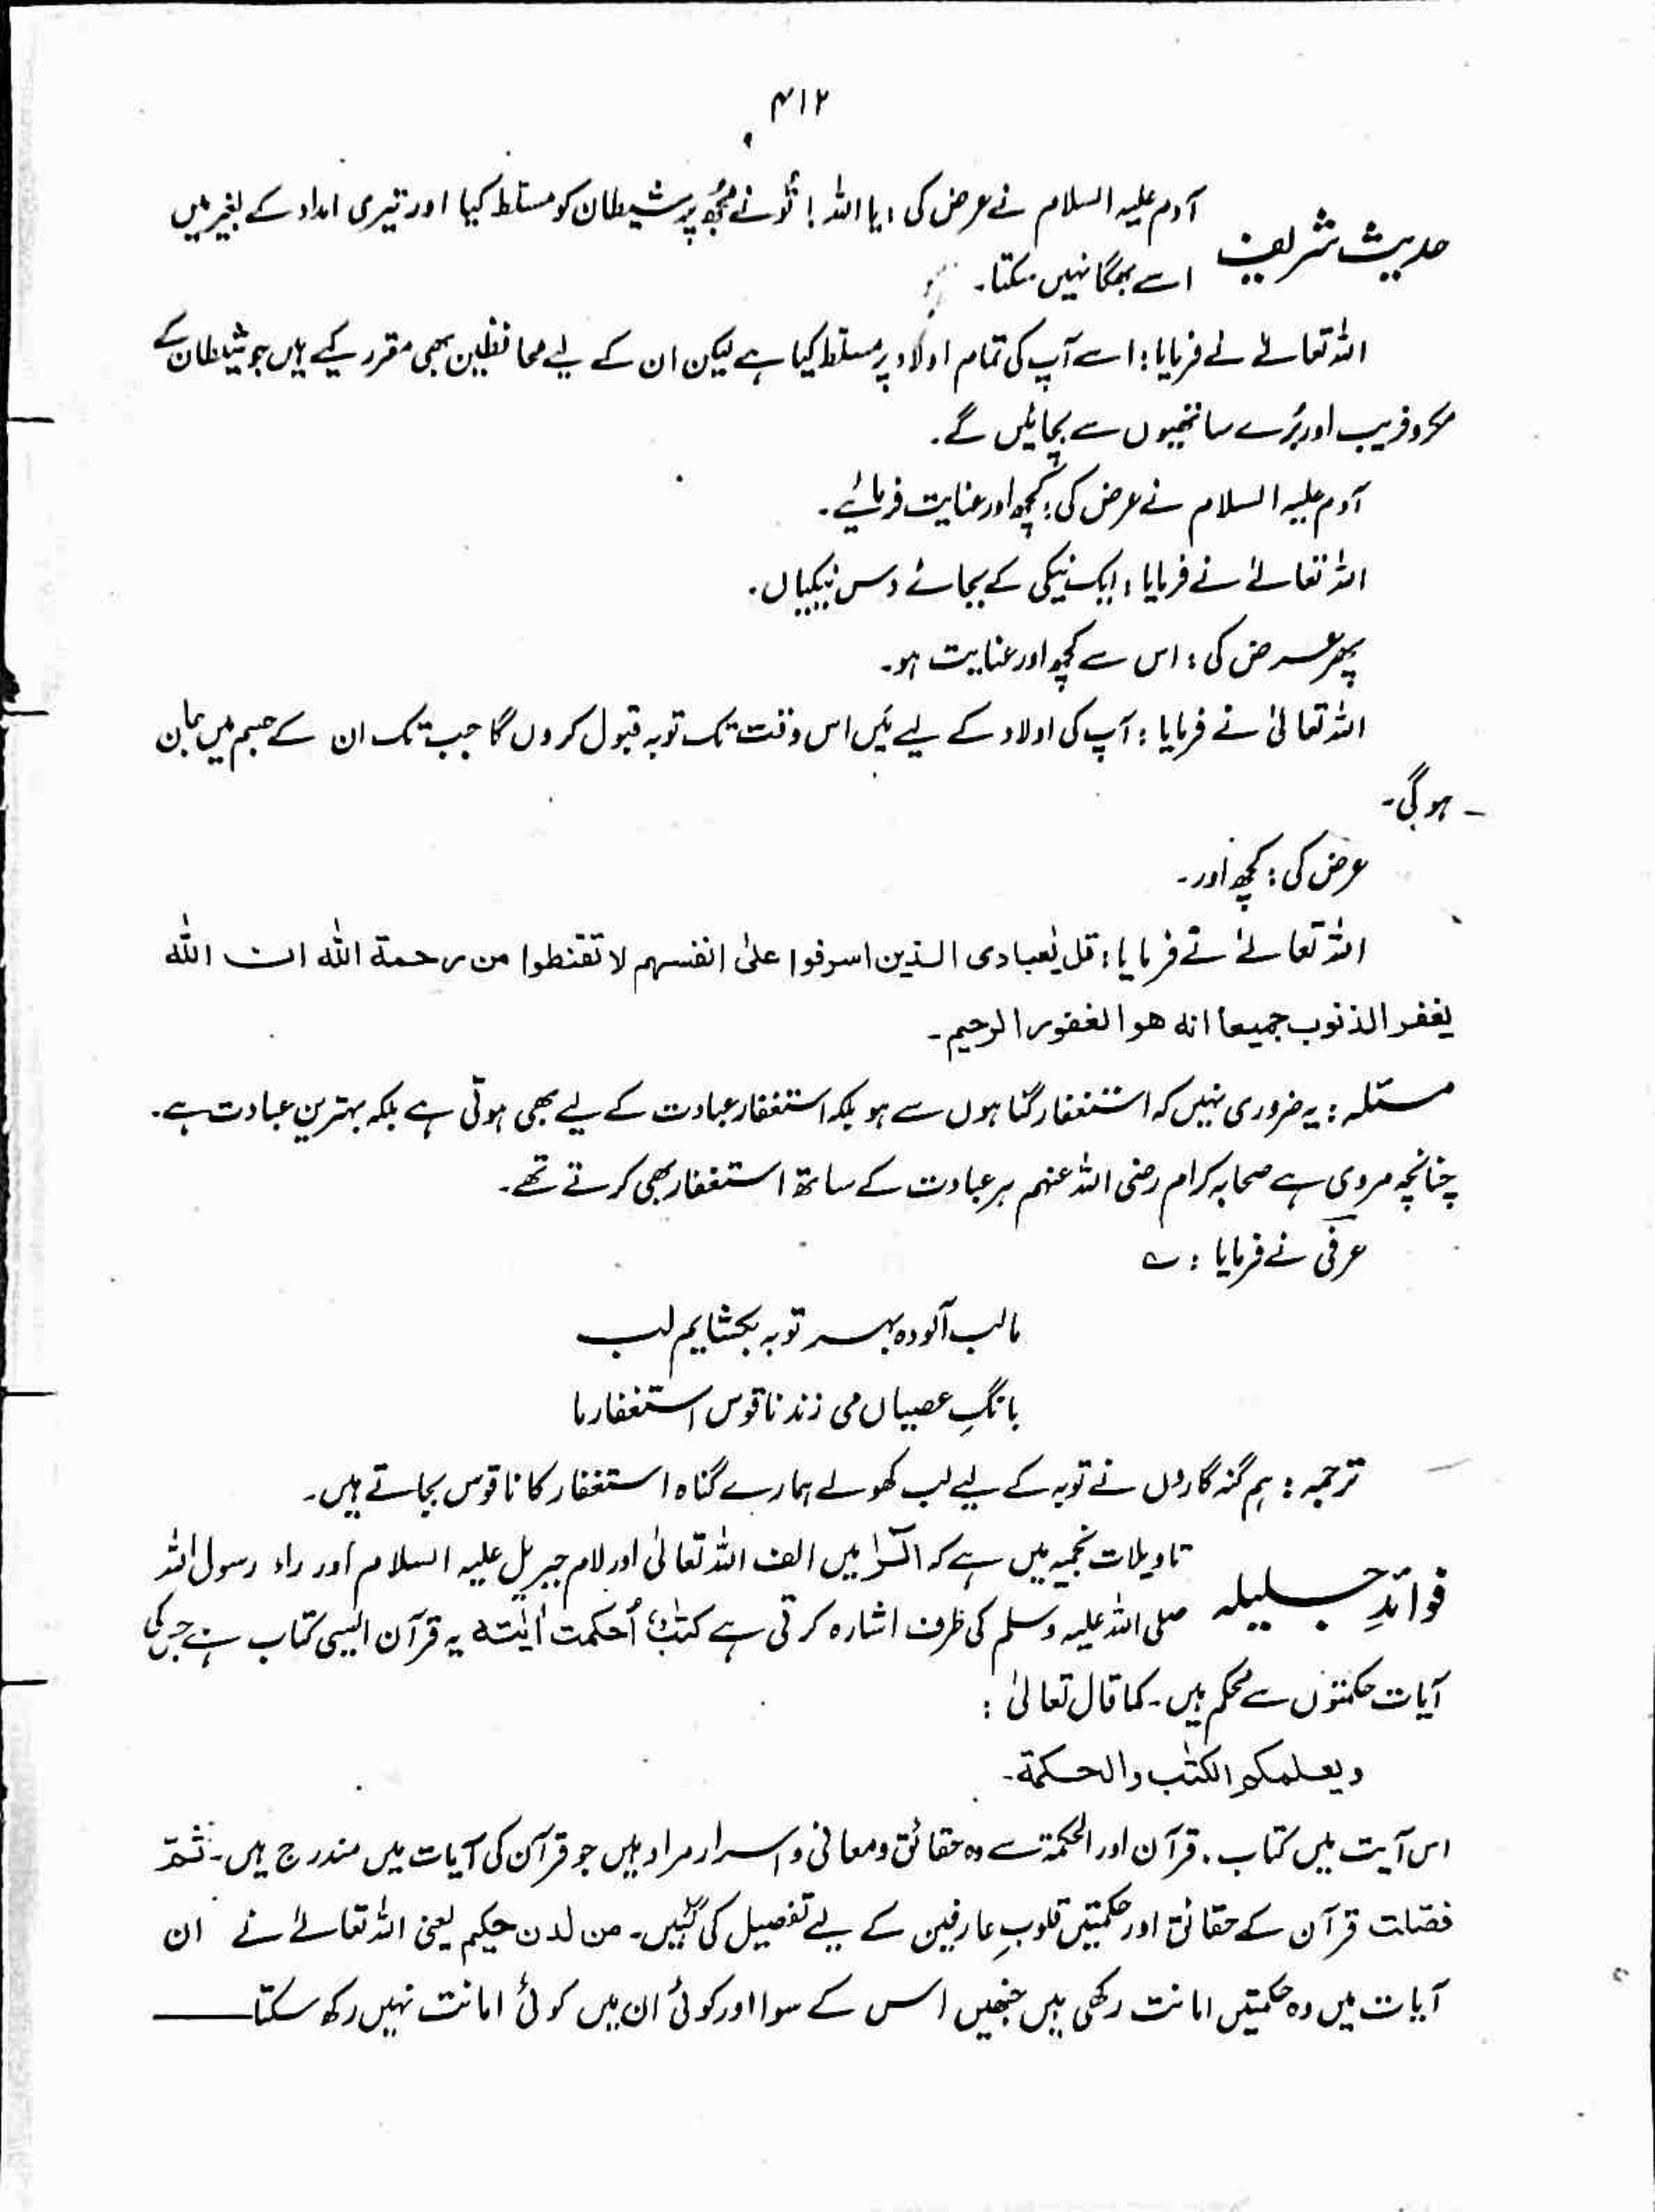 ۴۱۲
حدیث شریف آدم علیہ السلام نے عرض کی، یا اللہ! تُو نے مُجھ پر شیطان کو مسلّط کیا اور تیری امداد کے بغیر میں
اسے بھگا نہیں سکتا۔
اللہ تعالےٰ نے فرمایا: اسے آپ کی تمام اولاد پر مسلّط کیا ہے لیکن ان کے لیے محافظین بھی مقرر کیے ہیں جو شیطان کے
مکر و فریب اور بُرے ساتھیوں سے بچائیں گے۔
آدم علیہ السلام نے عرض کی: کُچھ اور عنایت فرمائیے۔
اللہ تعالےٰ نے فرمایا: ایک نیکی کے بجائے دس نیکیاں۔
پھر عرض کی: اس سے کچھ اور عنایت ہو۔
اللہ تعالیٰ نے فرمایا: آپ کی اولاد کے لیے مَیں اس وقت تک توبہ قبول کروں گا جب تک ان کے جسم میں جان
ہوگی۔
عرض کی: کچھ اور۔
اللہ تعالےٰ نے فرمایا: قل یٰعبادی الذین اسرفوا علیٰ انفسهم لا تقنطوا من رحمة الله ان الله
یغفر الذنوب جمیعا انه هو الغفور الرحیم۔
مسئلہ: یہ ضروری نہیں کہ استغفار گناہوں سے ہو بلکہ استغفار عبادت کے لیے بھی ہوتی ہے بلکہ بہترین عبادت ہے۔
چنانچہ مروی ہے صحابہ کرام رضی اللہ عنہم ہر عبادت کے ساتھ استغفار بھی کرتے تھے۔
عرفی نے فرمایا: ؎
ما لب آلودہ بہر توبہ بکشایم لب
بانگِ عصیاں می زند ناقوس استغفار ما
ترجمہ: ہم گنہگاروں نے توبہ کے لیے لب کھولے ہمارے گناہ استغفار کا ناقوس بجاتے ہیں۔
فوائدِ جلیلہ تاویلات نجمیہ میں ہے کہ الٓرٰ میں الف اللہ تعالیٰ اور لام جبریل علیہ السلام اور راء رسول اللہ
صلی اللہ علیہ وسلم کی طرف اشارہ کرتی ہے کتٰبٌ اُحکمت اٰیٰته یہ قرآن ایسی کتاب ہے جس کی
آیات حکمتوں سے محکم ہیں۔ کما قال تعالیٰ:
ویعلمکم الکتٰب والحکمة۔
اس آیت میں کتاب، قرآن اور الحکمۃ سے وہ حقائق و معانی و اسرار مراد ہیں جو قرآن کی آیات میں مندرج ہیں۔ ثمّ
فصّلت قرآن کے حقائق اور حکمتیں قلوبِ عارفین کے لیے تفصیل کی گئیں۔ من لدن حکیم یعنی اللہ تعالےٰ نے ان
آیات میں وہ حکمتیں امانت رکھی ہیں جنھیں اس کے سوا اور کوئی ان میں کوئی امانت نہیں رکھ سکتا ——